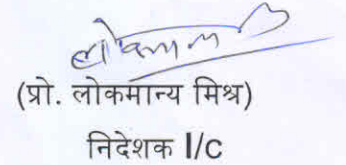 (प्रो. लोकमान्य मिश्र)
निदेशक I/C